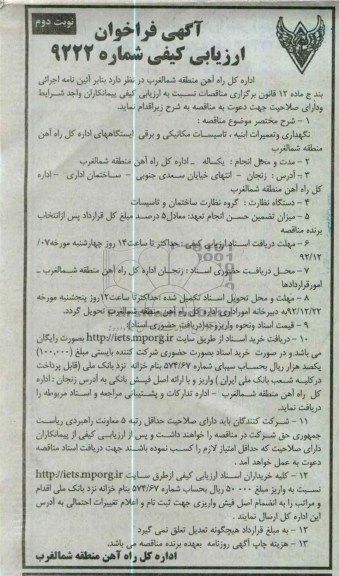 نوبت دوم
آگهی فراخوان
ارزیابی کیفی شماره ۹۲۲۲
اداره کل راه آهن منطقه شمالغرب در نظر دارد بنابر آئین نامه اجرائی
بند ج ماده ۱۲ قانون برگزاری مناقصات نسبت به ارزیابی کیفی پیمانکاران واجد شرایط
ودارای صلاحیت جهت دعوت به مناقصه به شرح زیراقدام نماید.
۱ – شرح مختصر موضوع مناقصه :
نگهداری وتعمیرات ابنیه ، تاسیسات مکانیکی و برقی ایستگاههای اداره کل راه آهن
منطقه شمالغرب
۲ – مدت و محل انجام : یکساله – اداره کل راه آهن منطقه شمالغرب
۳ – آدرس : زنجان – انتهای خیابان سعدی جنوبی – ساختمان اداری – اداره
کل راه آهن منطقه شمالغرب
۴ – دستگاه نظارت : گروه نظارت ساختمان و تاسیسات
۵ – میزان تضمین حسن انجام تعهد: معادل۵ درصد مبلغ کل قرارداد پس ازانتخاب
برنده مناقصه
۶ – مهلت دریافت اسناد ارزیابی کیفی : حداکثر تا ساعت۱۴ روز چهارشنبه مورخه۰۷/
۹۲/۱۲
۷ – محل دریافت حضوری اسناد : زنجان اداره کل راه آهن منطقه شمالغرب –
امورقراردادها
۸ – مهلت و محل تحویل اسناد تکمیل شده :حداکثر تا ساعت۱۲روز پنجشنبه مورخه
۹۲/۱۲/۲۲به دبیرخانه اموراداری اداره کل راه آهن منطقه شمالغرب تحویل گردد.
۹ – قیمت اسناد ونحوه واریزوجه(دریافت حضوری اسناد):
۱۰ – دریافت خرید اسناد از طریق سایت http://iets.mporg.ir بصورت رایگان
می باشد و در صورت خرید اسناد بصورت حضوری شرکت کننده بایستی مبلغ (۱۰۰،۰۰۰)
یکصد هزار ریال بحساب سیبای شماره ۵۷۴/۶۷ بنام خزانه نزد بانک ملی (قابل پرداخت
درکلیه شعب بانک ملی ایران ) واریز و با ارائه اصل فیش بانکی به آدرس زنجان : اداره
کل راه آهن منطقه شمالغرب – اداره تدارکات و پشتیبانی مراجعه و اسناد مربوطه را
دریافت نماید.
۱۱ – شرکت کنندگان باید دارای صلاحیت حداقل رتبه ۵ معاونت راهبردی ریاست
جمهوری حق شرکت در مناقصه را خواهند داشت و پس از ارزیابی کیفی از پیمانکاران
دارای صلاحیت که حداقل امتیاز لازم را کسب نموده باشند جهت دریافت اسناد مناقصه
دعوت به عمل خواهد آمد .
۱۲ – کلیه خریداران اسناد ارزیابی کیفی ازطرق سایت http://iets.mporg.ir
نسبت به واریز مبلغ ۵۰۰۰۰ ریال بحساب شماره ۵۷۴/۶۷ بنام خزانه نزد بانک ملی اقدام
و مراتب را به انضمام اصل فیش واریزی جهت ثبت نام و اعلام تغییرات احتمالی به آدرس
این اداره کل ارسال نمایند .
۱۲ – به مبلغ قرارداد هیچگونه تعدیل تعلق نمی گیرد
۱۳ – هزینه چاپ آگهی روزنامه بعهده برنده مناقصه می باشد.
اداره کل راه آهن منطقه شمالغرب